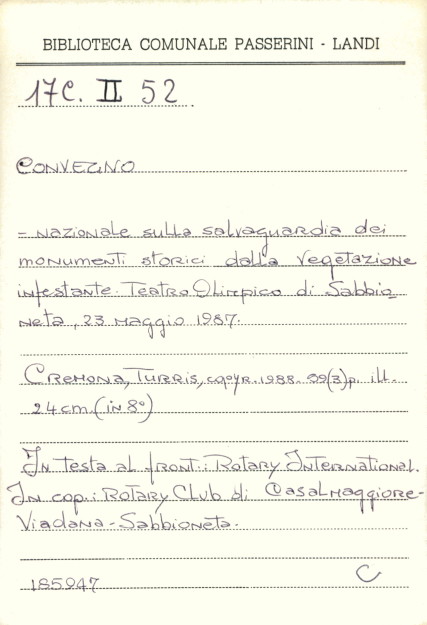 BIBLIOTECA COMUNALE PASSERINI - LANDI
17C. II 52
CONVEGNO
= NAZIONALE sulla salvaguardia dei
monumenti storici dalla vegetazione
infestante. Teatro Olimpico di Sabbio
neta, 23 maggio 1987.
CREMONA, TURRIS, copyr. 1988. 99(3)p. ill.
24 cm. (in 8°)
In testa al front.: Rotary International.
In cop.: Rotary Club di Casalmaggiore-
Viadana-Sabbioneta.
185947 C